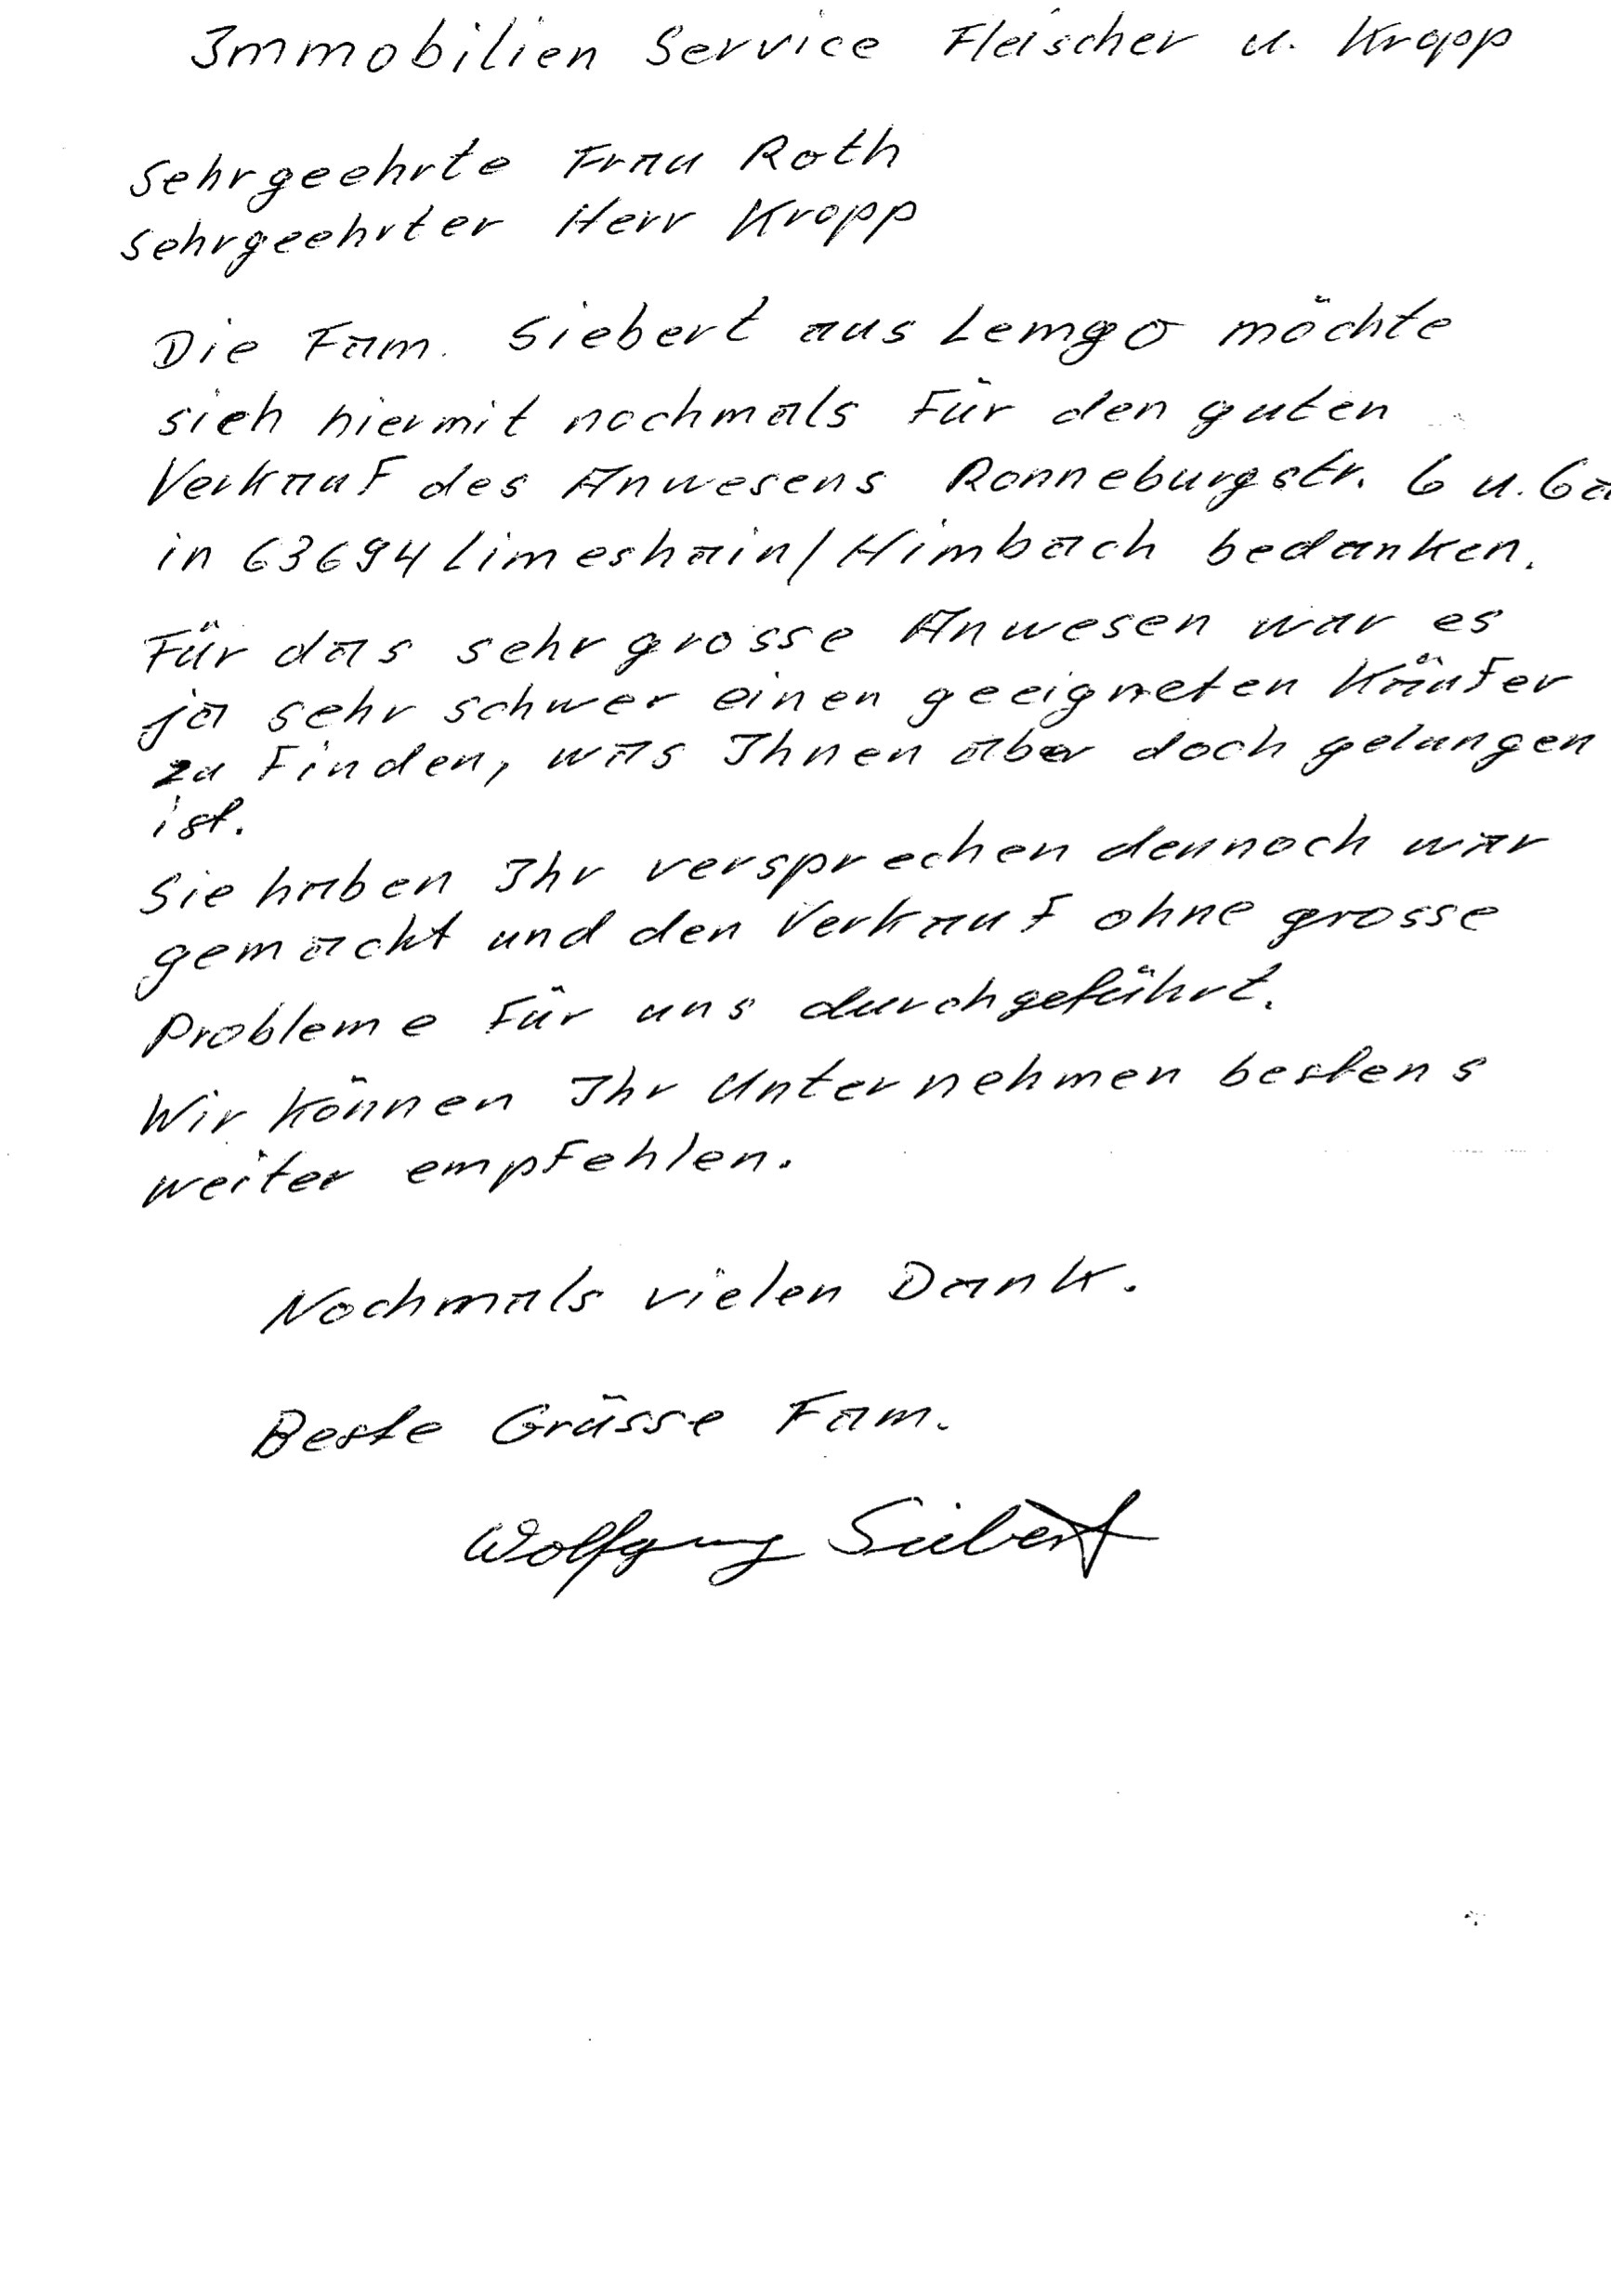 Immobilien Service Fleischer u. Kropp
Sehrgeehrte Frau Roth
Sehrgeehrter Herr Kropp
Die Fam. Siebert aus Lemgo möchte
sich hiermit nochmals Für den guten
Verkauf des Anwesens Ronneburgstr. 6 u. 6a
in 63694 Limeshain/Himbach bedanken.
Für das sehr grosse Anwesen war es
ja sehr schwer einen geeigneten Käufer
zu Finden, was Ihnen aber doch gelungen
ist.
Sie haben Ihr versprechen dennoch war
gemacht und den Verkauf ohne grosse
Probleme Für uns durchgeführt.
Wir können Ihr Unternehmen bestens
weiter empfehlen.
Nochmals vielen Dank.
Beste Grüsse Fam.
Wolfgang Siebert